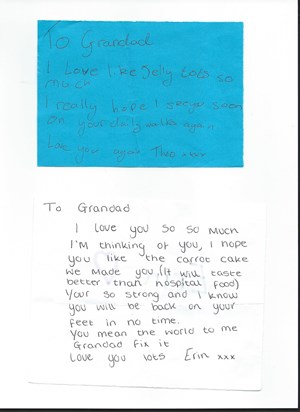 To Grandad
I Love like Jelly tots so
much
I really hope I see you soon
on your daily walks again
Love you again Theo xxx
To Grandad
I love you so so much
I'm thinking of you, I hope
you like the carrot cake
we made you (It will taste
better than hospital food)
Your so strong and I know
you will be back on your
feet in no time.
You mean the world to me
Grandad fix it
Love you lots Erin xxx